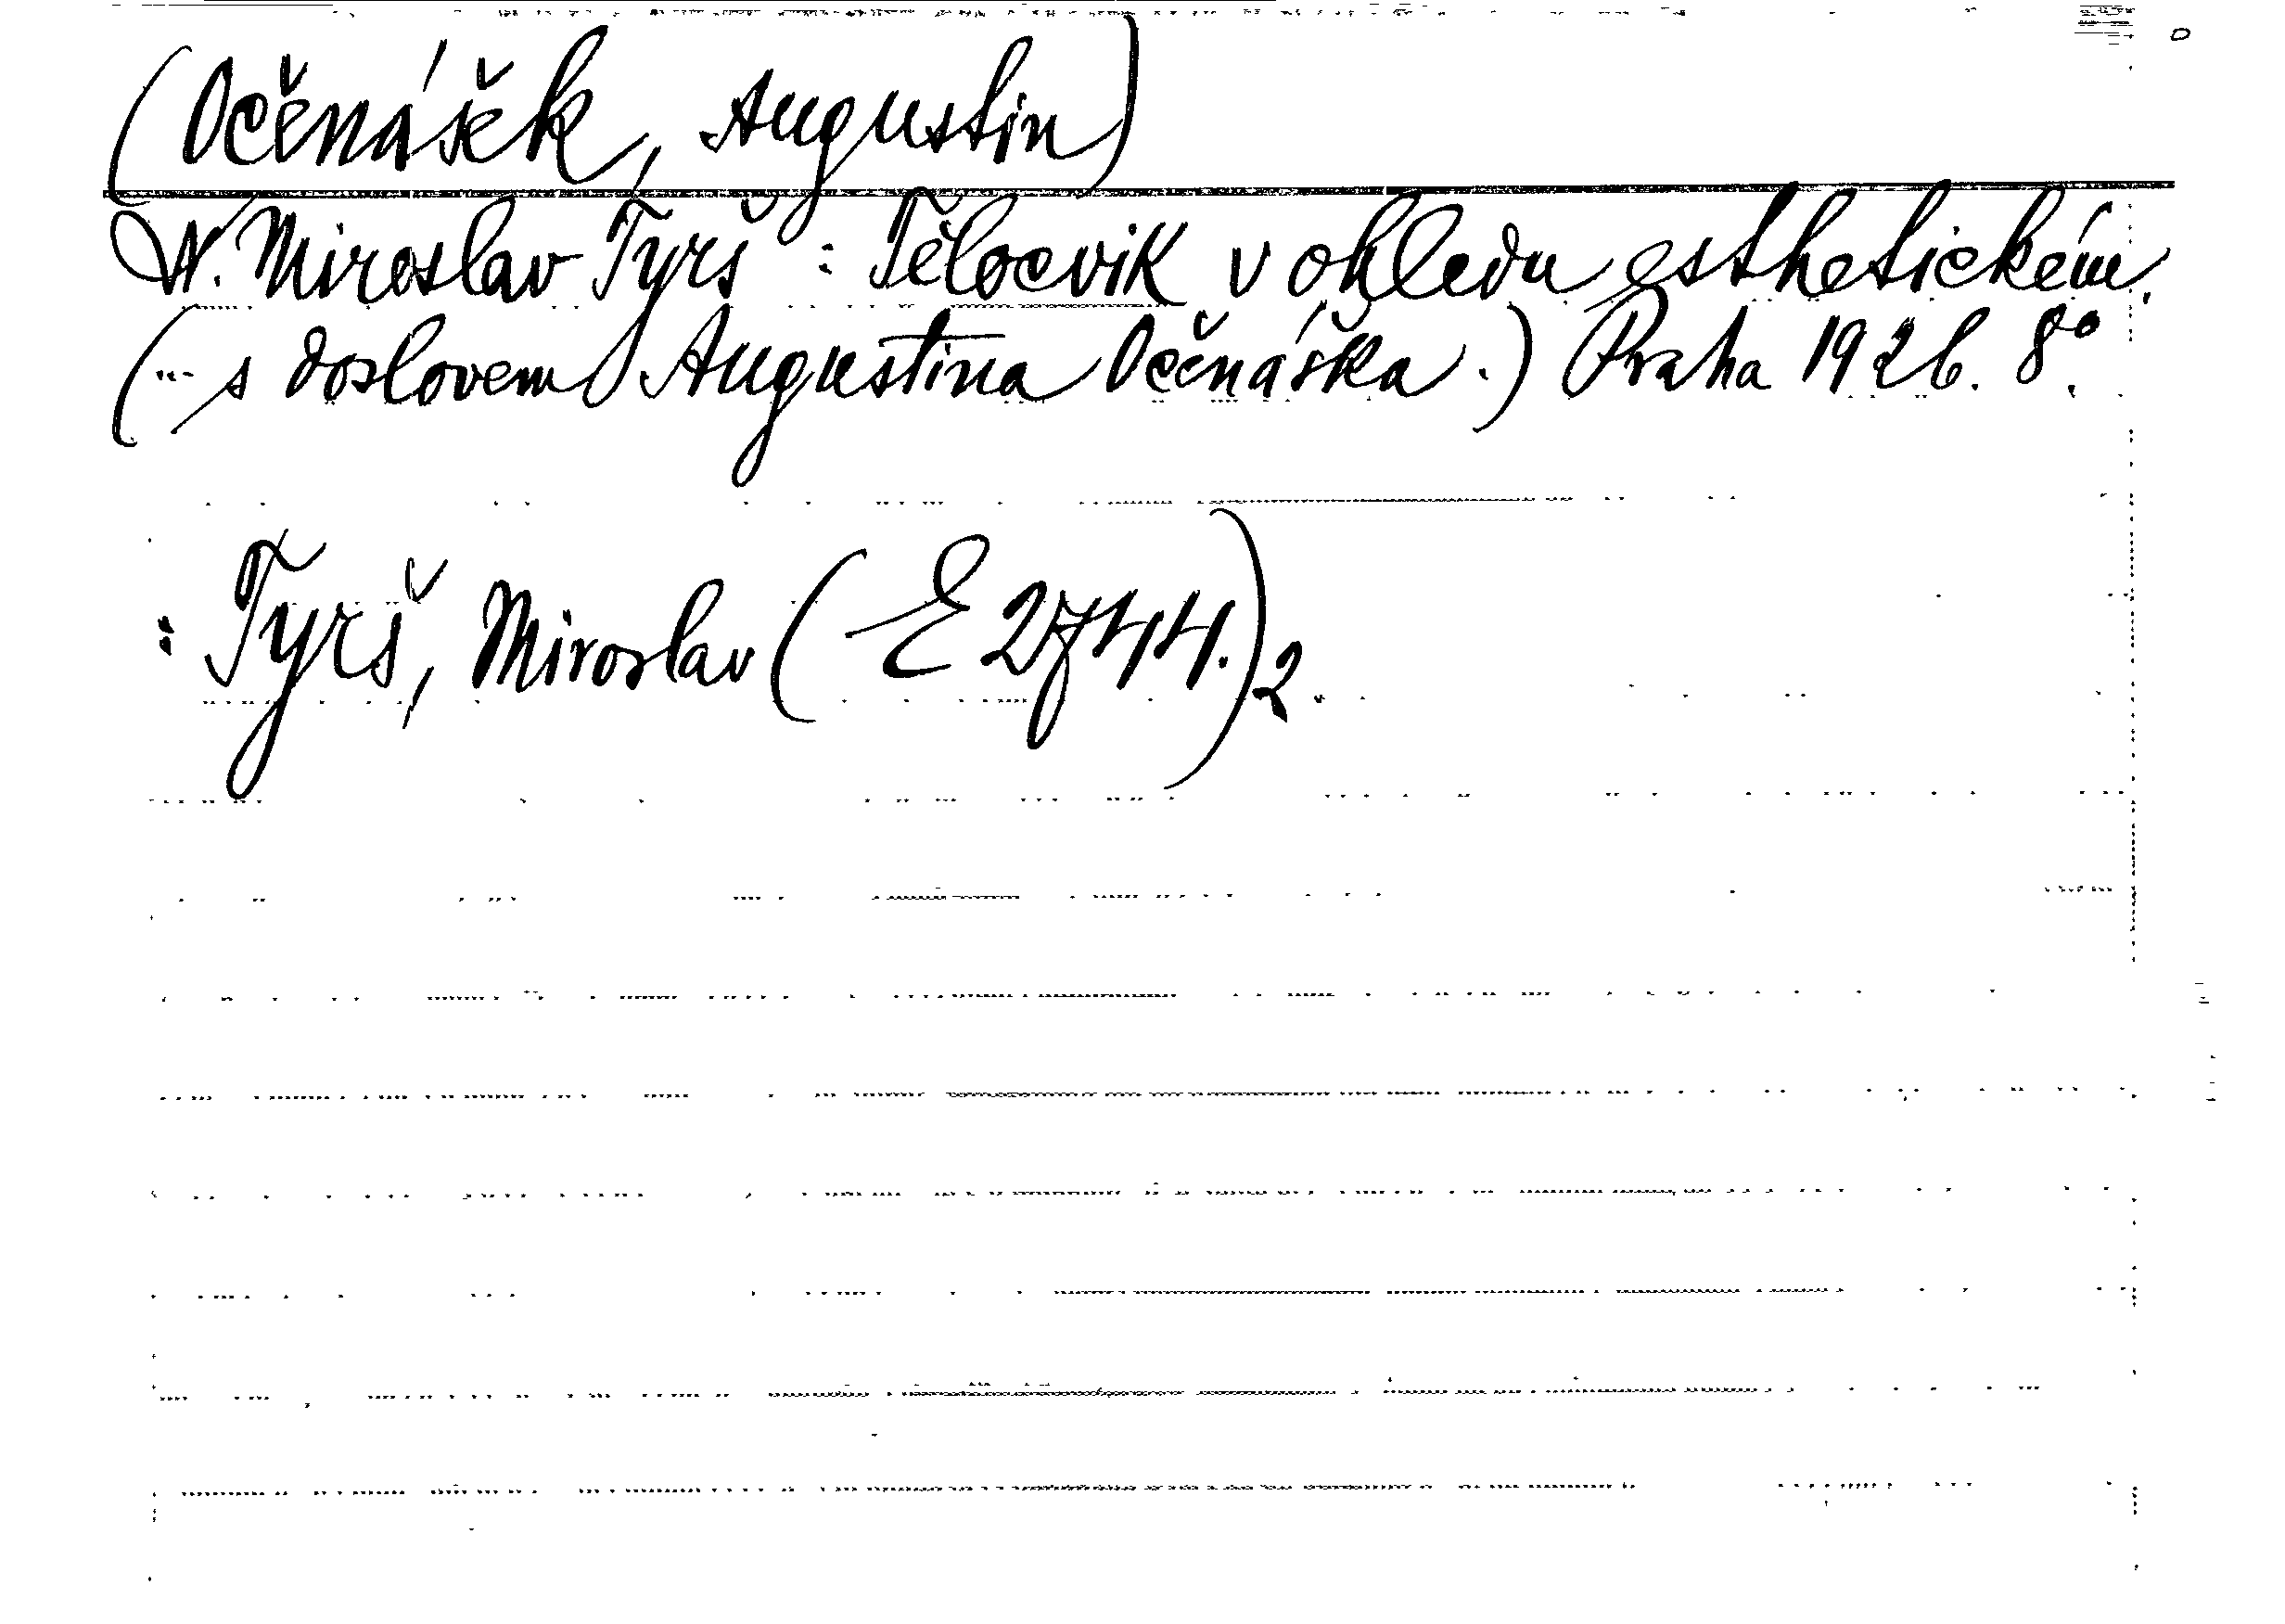 (Očenášek, Augustin)
V. Miroslav Tyrš : Tělocvik v ohledu esthetickém.
(... s doslovem Augustina Očenáška.) Praha 1926. 8°.
: Tyrš, Miroslav (E 2744.)2.